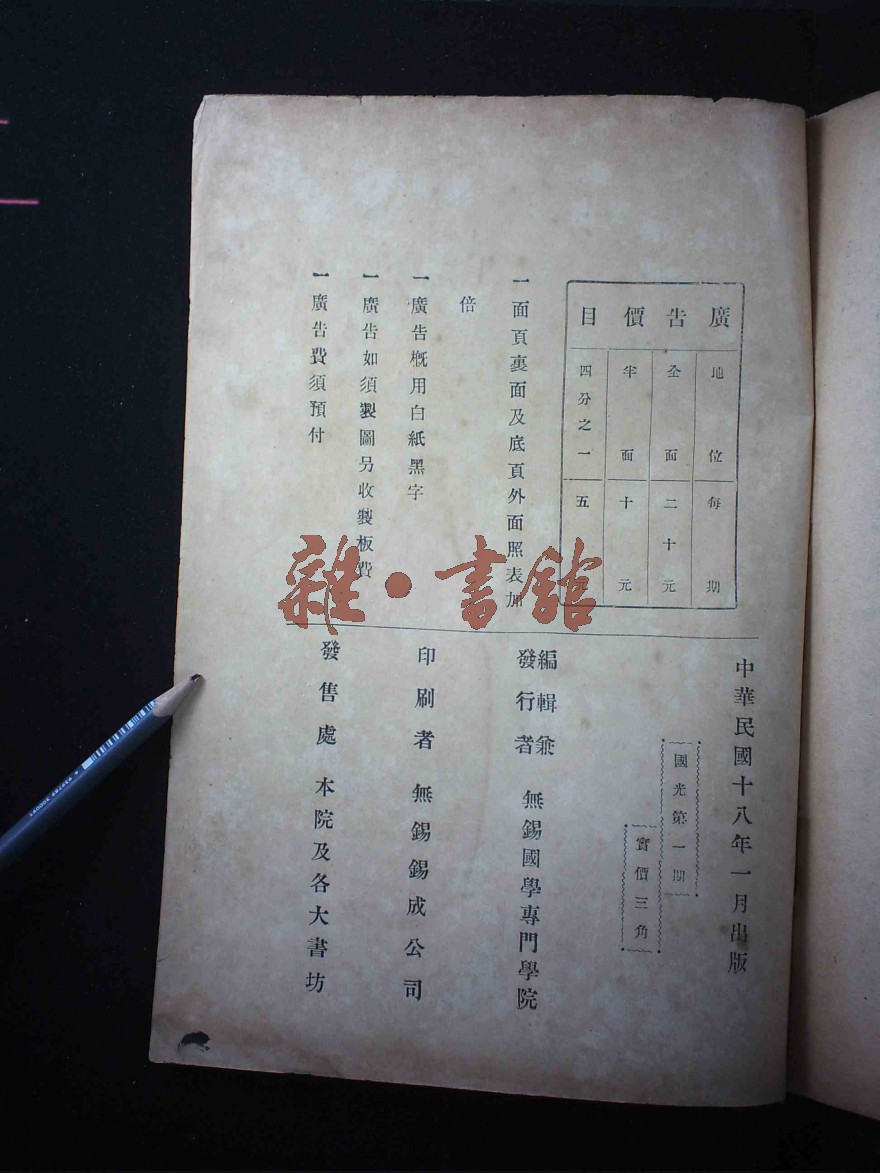 廣告價目
地位 每期
全面 二十元
半面 十元
四分之一 五元
一面頁裏面及底頁外面照表加
倍
一廣告概用白紙黑字
一廣告如須製圖另收製板費
一廣告費須預付
中華民國十八年一月出版
國光第一期
實價三角
編輯兼
發行者 無錫國學專門學院
印刷者 無錫錫成公司
發售處 本院及各大書坊
雜·書館